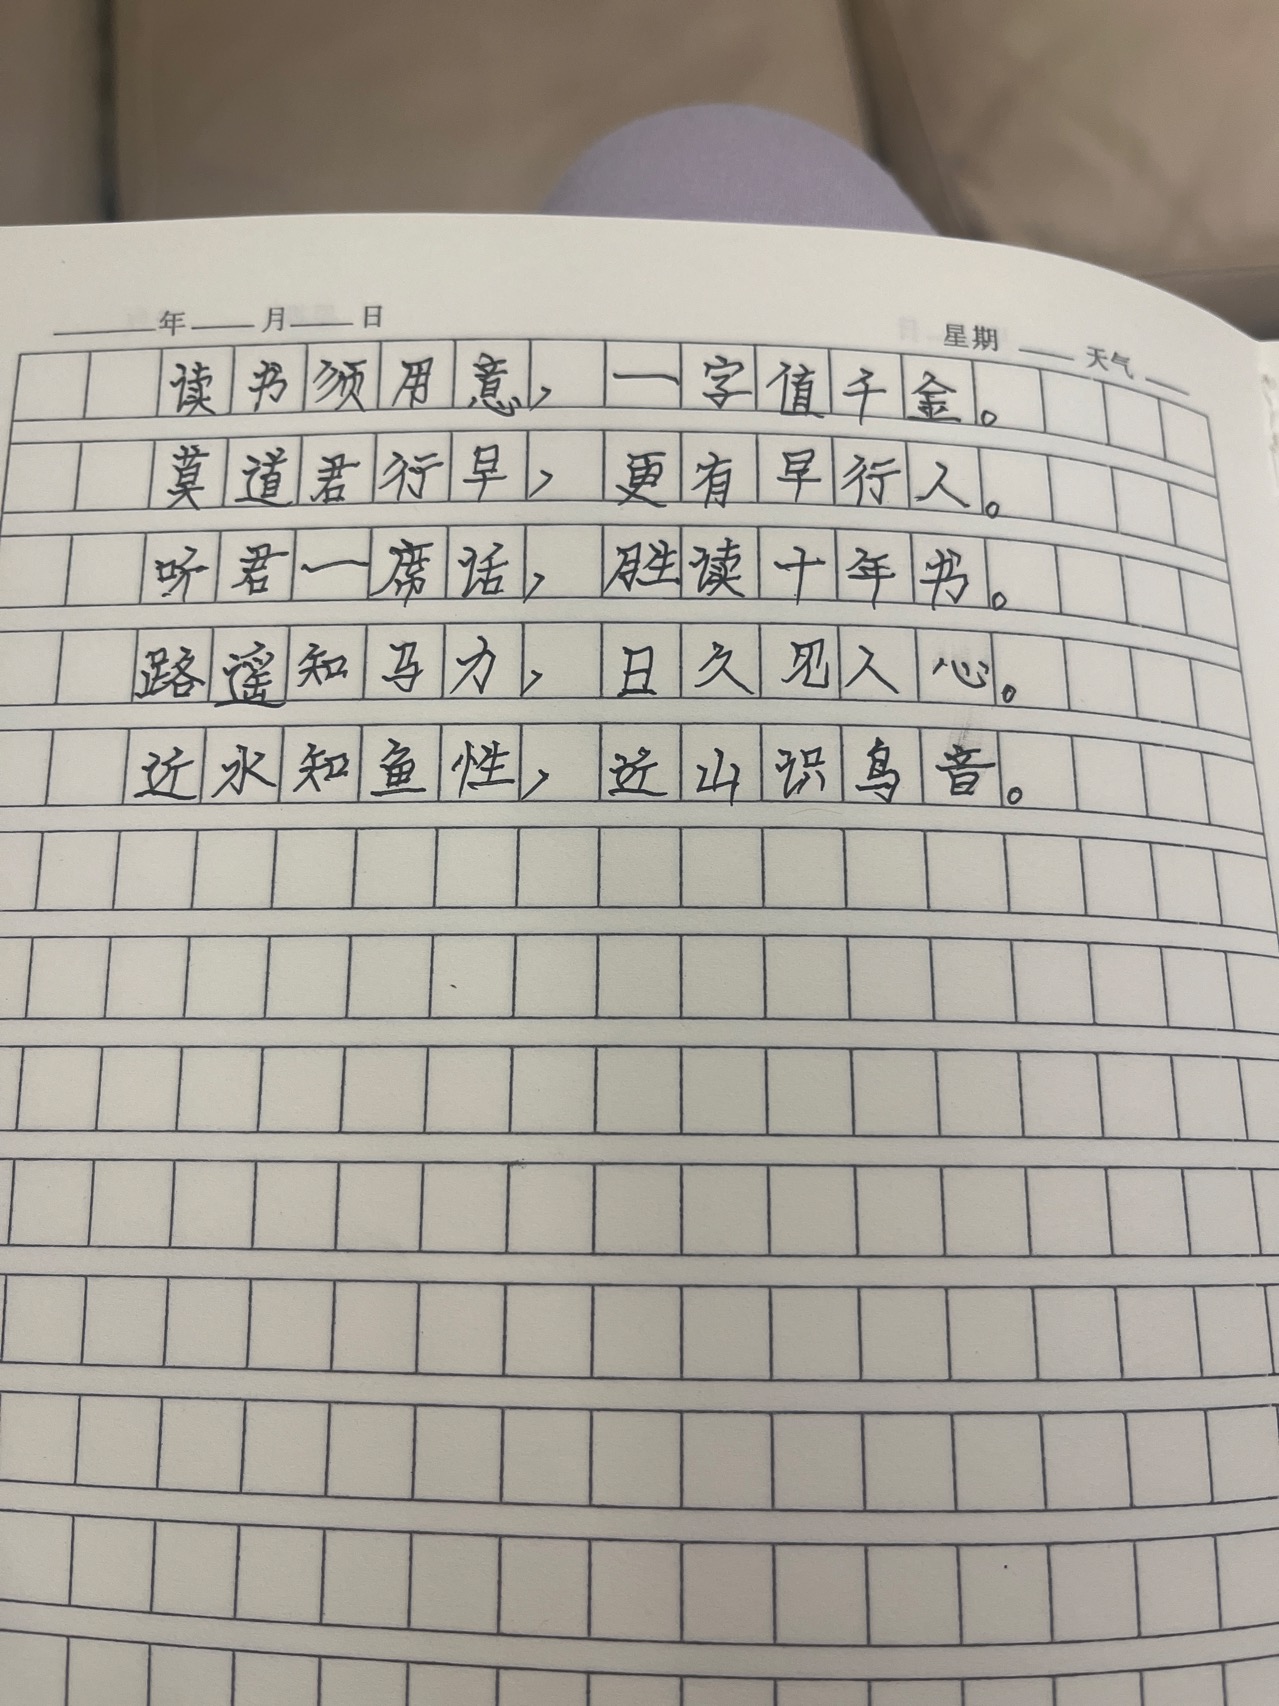 年 月 日 星期 天气
读书须用意，一字值千金。
莫道君行早，更有早行人。
听君一席话，胜读十年书。
路遥知马力，日久见人心。
近水知鱼性，近山识鸟音。